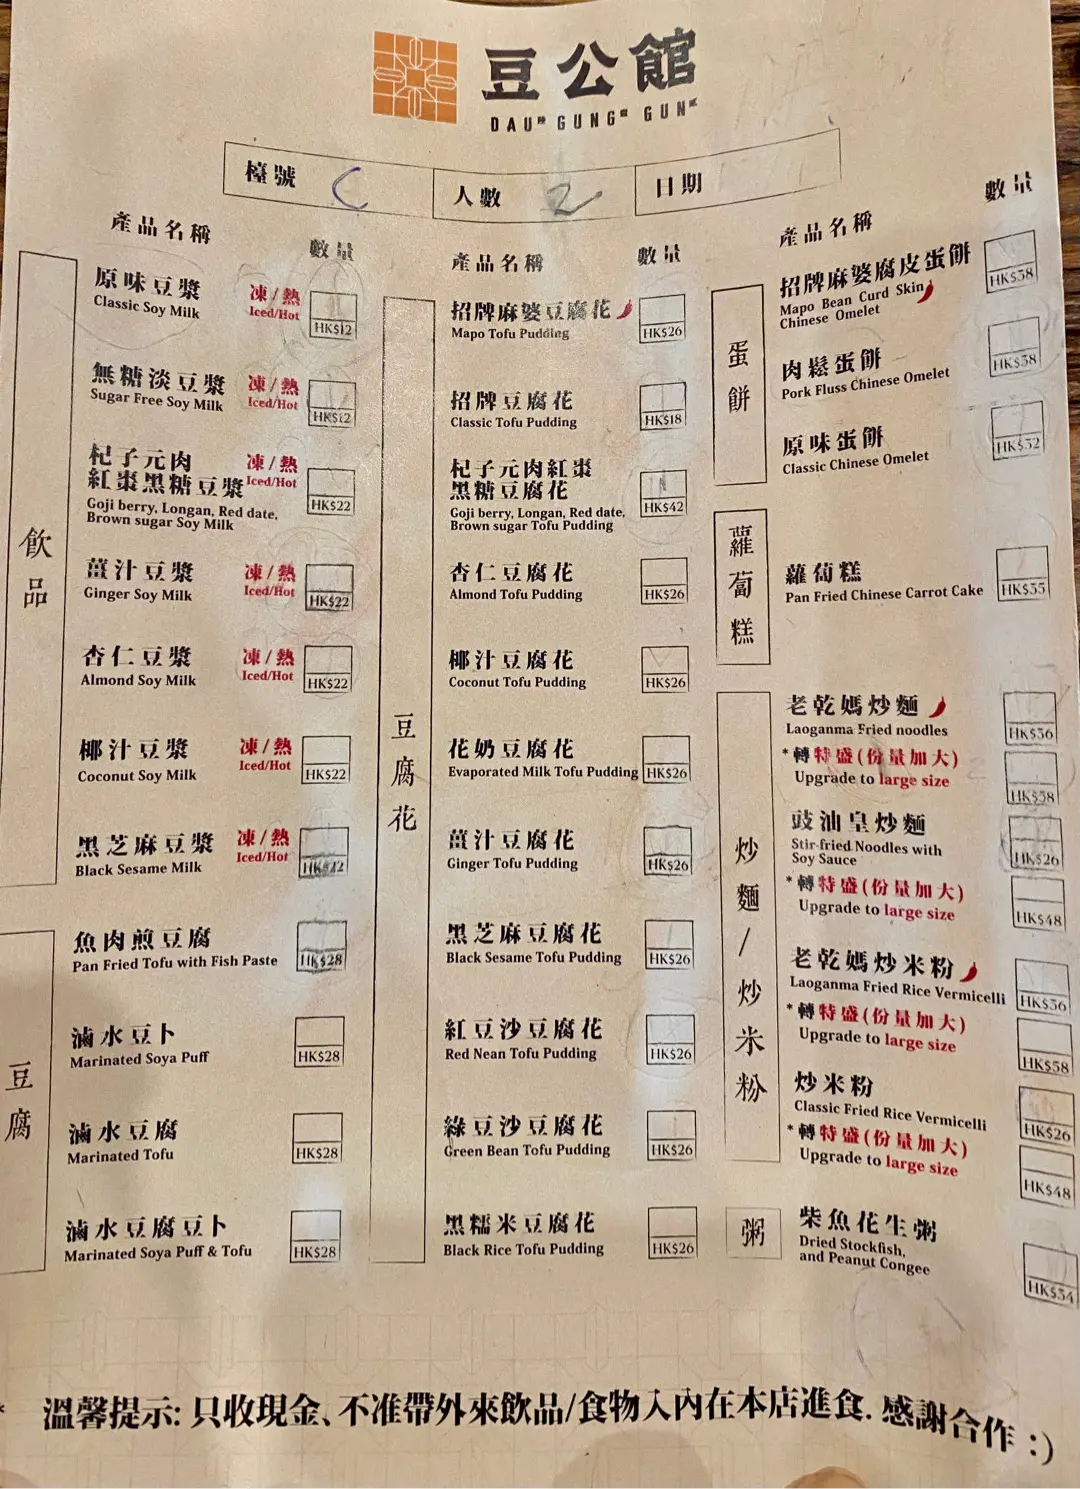 豆公館
DAU GUNG GUN
檯號 C
人數 2
日期
產品名稱 數量
飲品
原味豆漿 凍/熱
Classic Soy Milk Iced/Hot
HK$12
無糖淡豆漿 凍/熱
Sugar Free Soy Milk Iced/Hot
HK$12
杞子元肉 凍/熱
紅棗黑糖豆漿 Iced/Hot
Goji berry, Longan, Red date,
Brown sugar Soy Milk
HK$22
薑汁豆漿 凍/熱
Ginger Soy Milk Iced/Hot
HK$22
杏仁豆漿 凍/熱
Almond Soy Milk Iced/Hot
HK$22
椰汁豆漿 凍/熱
Coconut Soy Milk Iced/Hot
HK$22
黑芝麻豆漿 凍/熱
Black Sesame Milk Iced/Hot
豆腐
魚肉煎豆腐
Pan Fried Tofu with Fish Paste
HK$28
滷水豆卜
Marinated Soya Puff
HK$28
滷水豆腐
Marinated Tofu
HK$28
滷水豆腐豆卜
Marinated Soya Puff & Tofu
HK$28
產品名稱 數量
豆腐花
招牌麻婆豆腐花
Mapo Tofu Pudding
HK$26
招牌豆腐花
Classic Tofu Pudding
HK$18
杞子元肉紅棗
黑糖豆腐花
Goji berry, Longan, Red date,
Brown sugar Tofu Pudding
HK$42
杏仁豆腐花
Almond Tofu Pudding
HK$26
椰汁豆腐花
Coconut Tofu Pudding
HK$26
花奶豆腐花
Evaporated Milk Tofu Pudding
HK$26
薑汁豆腐花
Ginger Tofu Pudding
HK$26
黑芝麻豆腐花
Black Sesame Tofu Pudding
HK$26
紅豆沙豆腐花
Red Nean Tofu Pudding
HK$26
綠豆沙豆腐花
Green Bean Tofu Pudding
HK$26
黑糯米豆腐花
Black Rice Tofu Pudding
HK$26
產品名稱 數量
蛋餅
招牌麻婆腐皮蛋餅
Mapo Bean Curd Skin
Chinese Omelet
HK$38
肉鬆蛋餅
Pork Fluss Chinese Omelet
HK$38
原味蛋餅
Classic Chinese Omelet
HK$32
蘿蔔糕
蘿蔔糕
Pan Fried Chinese Carrot Cake
HK$35
炒麵/炒米粉
老乾媽炒麵
Laoganma Fried noodles
HK$36
*轉特盛(份量加大)
Upgrade to large size
HK$58
豉油皇炒麵
Stir-fried Noodles with
Soy Sauce
HK$26
*轉特盛(份量加大)
Upgrade to large size
HK$48
老乾媽炒米粉
Laoganma Fried Rice Vermicelli
HK$36
*轉特盛(份量加大)
Upgrade to large size
HK$58
炒米粉
Classic Fried Rice Vermicelli
HK$26
*轉特盛(份量加大)
Upgrade to large size
HK$48
粥
柴魚花生粥
Dried Stockfish,
and Peanut Congee
HK$34
* 溫馨提示: 只收現金、不准帶外來飲品/食物入內在本店進食. 感謝合作 :)